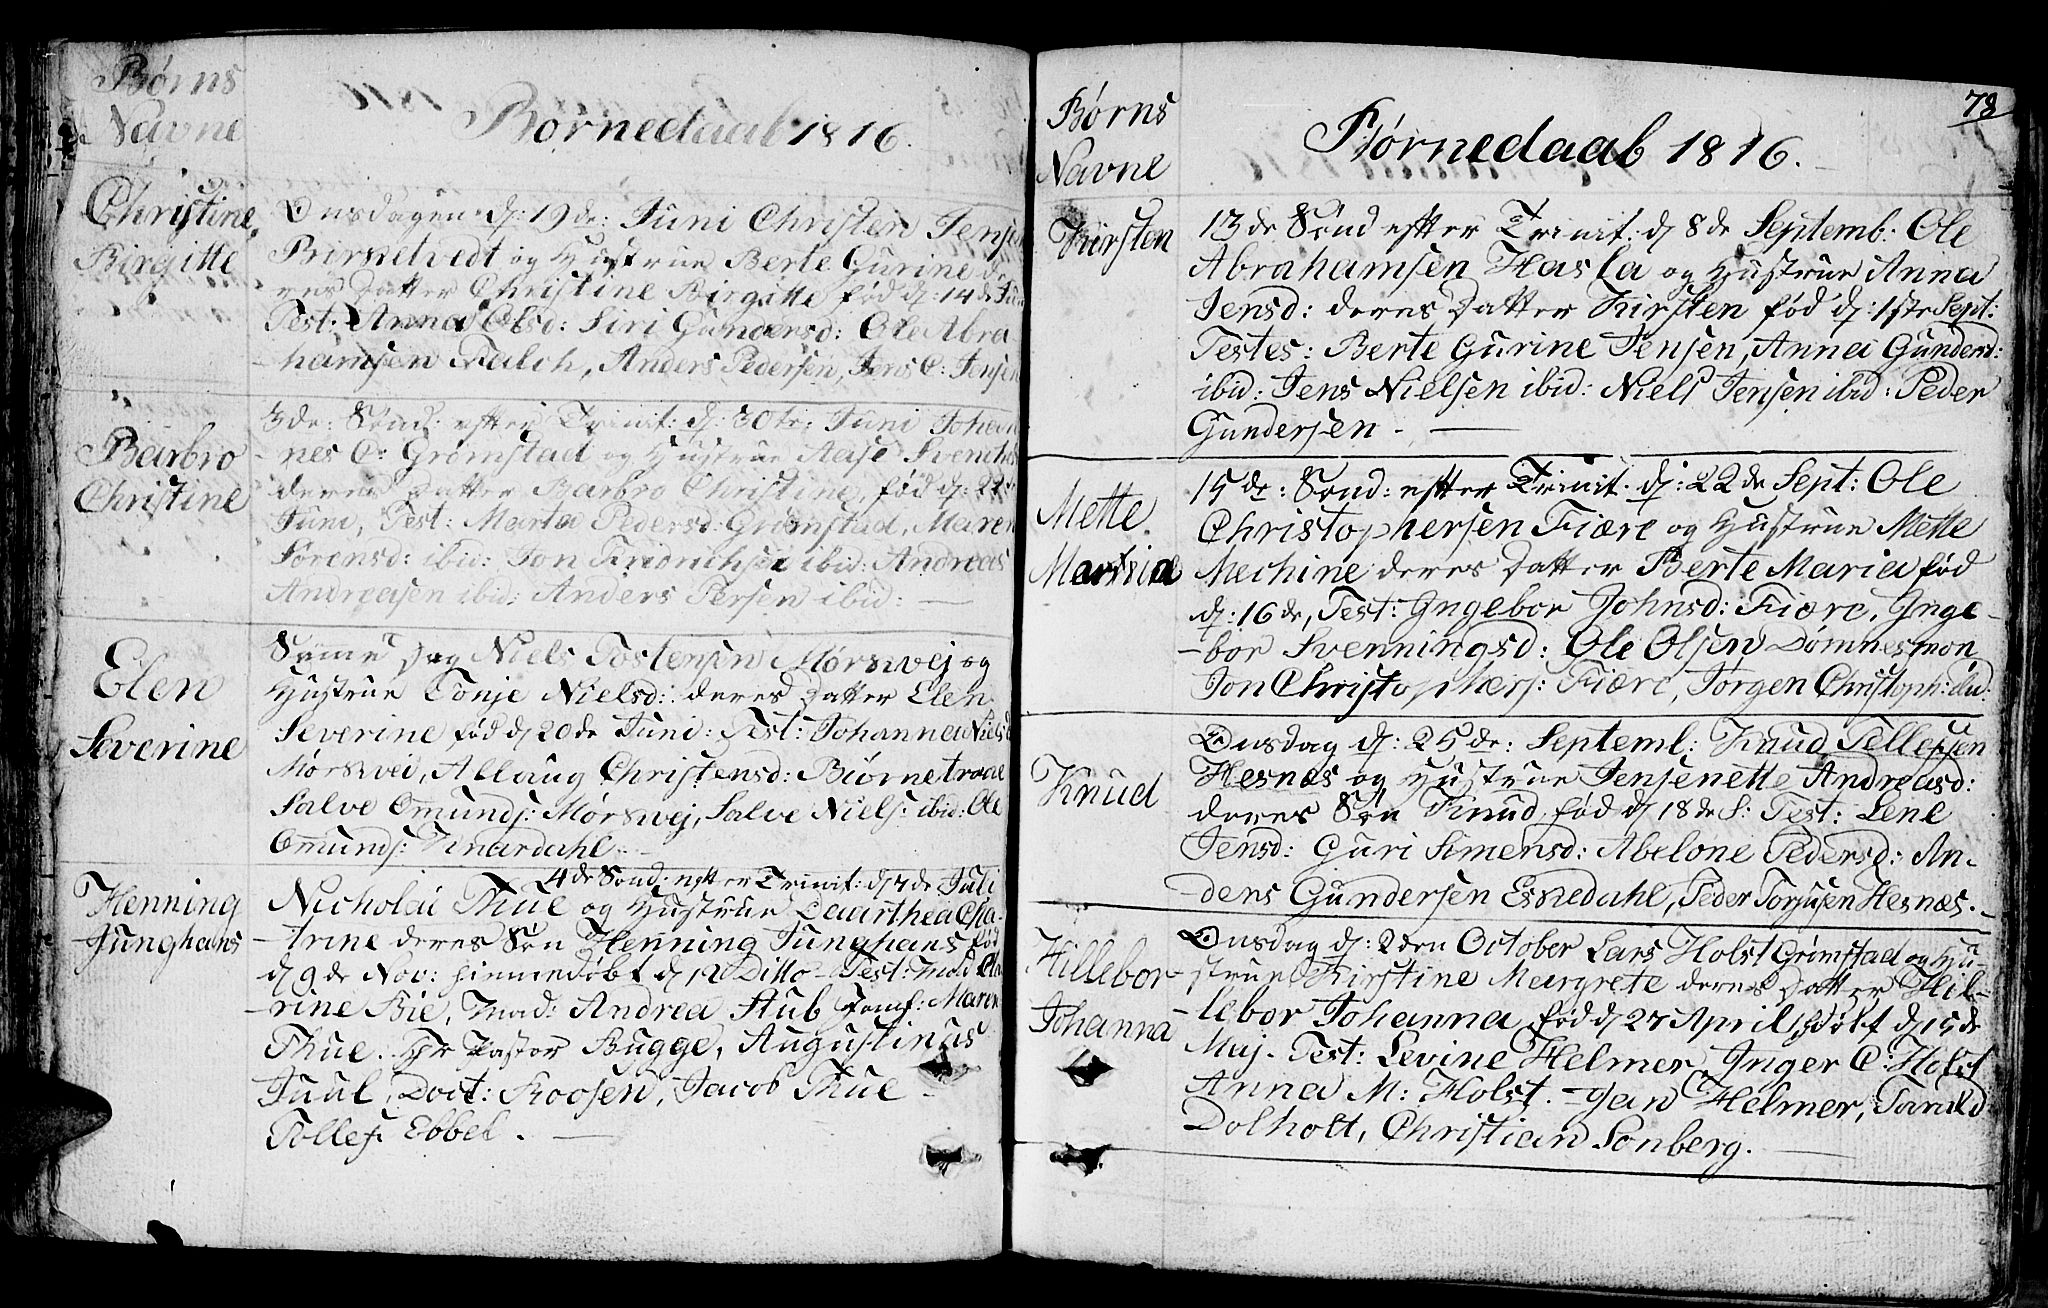 Børns
Navne
Børnedaab 1816.
Christine
Birgitte
Onsdagen d: 19de: Juni Christen Jensen
og Hustrue Berte Gurine de
res Datter Christine Birgitte fød d: 14de Juni
Test: Anna Olsd: Siri Gundersd: Ole Abra
hamsen Falch, Anders Pedersen, Jens C: Jensen
Barbro
Christine
3de: Sønd: efter Trinit: d: 30te: Juni Johan
nes C: Grømstad og Hustrue Aase
deres Datter Barbro Christine, fød d:
Juni, Test: Marta Pedersd: Grømstad, Maren
Sørensd: ibid: Jon Fridrichsen ibid: Andreas
Andreasen ibid: Anders Persen ibid: —
Elen
Severine
Samme Dag Niels Tostensen Mørsvej og
Hustrue Tonje Nielsd: deres Datter Elen
Severine fød d 20de Juni: Test: Johanna Nielsd
Mørsvei, Allaug Christensd: Biørnetraae
Salve Omunds: Mørsvej, Salve Niels: ibid: Ole
Omunds: Knardahl. —
Henning
Junghans
4de Sønd: efter Trinit: d 7de Juli
Nicholai Thue og Hustrue Daarthea Cha-
-trine deres Søn Henning Junghans fød
d 9de Nov: hiemmedøbt d 12 Ditto - Test: Mad
-rine Bie, Mad: Andrea Stub Jomf: Maren
Thue. Hr Pastor Bugge, Augustinus
Juul, Doct: Roosen, Jacob Thue -
Tollef Ebbel. —
78
Børns
Navne
Børnedaab 1816. —
Kirsten
13de Sønd efter Trinit: d 8de Septemb: Ole
Abrahamsen Hasla og Hustrue Anna
Jensd: deres Datter Kirsten fød d: 1ste Sept:
Testes: Berte Gurine Jensen, Anna Gundersd:
ibid: Jens Nielsen ibid: Niels Jensen ibid: Peder
Gundersen - —
Mette
Maria
15de: Sønd: efter Trinit: d: 22de Sept: Ole
Christophersen Fiære og Hustrue Mette
Mechine deres Datter Berte Maria fød
d: 16de, Test: Ingebor Johnsd: Fiære, Inge-
-bor Svenningsd: Ole Olsen Dømnesmon
Jon Christophers: Fiære, Jørgen Christoph: ibid:
Knud
Onsdag d: 25de: Septembr: Knud Tellefsen
Hesnæs og Hustrue Jensenette Andreasd:
deres Søn Knud, fød d 18de S: Test: Lene
Jensd: Guri Simensd: Abelone Pedersd: An-
-ders Gundersen Esnedahl, Peder Torjusen Hesnæs. -
Hillebor
Johanna
Onsdag d: 2den October Lars Holst Grømstad og Hu-
strue Kirstine Margrete deres Datter Hil-
-lebor Johanna, fød d 27 April døbt d 15de
Maj - Test: Levine Helmer, Inger C: Holst
Anna M: Holst. - Jan Helmer, Tarald
Dolholt, Christian Lonberg. —